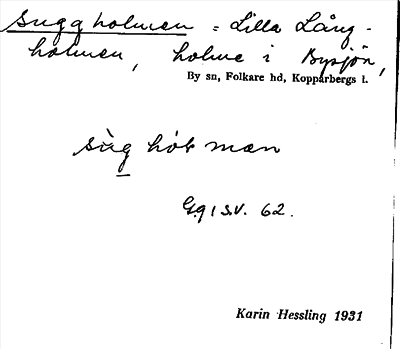 Suggholmen = Lilla Lång-
holmen, holme i Bysjön,
By sn, Folkare hd, Kopparbergs l.
sùg hòt mæn
Gg 1 S.V. 62.
Karin Hessling 1931